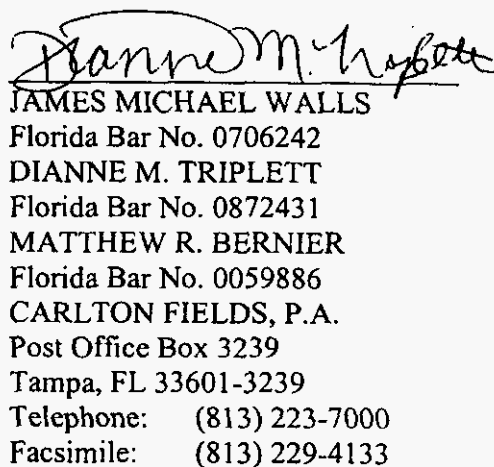 Dianne M. Triplett
JAMES MICHAEL WALLS
Florida Bar No. 0706242
DIANNE M. TRIPLETT
Florida Bar No. 0872431
MATTHEW R. BERNIER
Florida Bar No. 0059886
CARLTON FIELDS, P.A.
Post Office Box 3239
Tampa, FL 33601-3239
Telephone: (813) 223-7000
Facsimile: (813) 229-4133